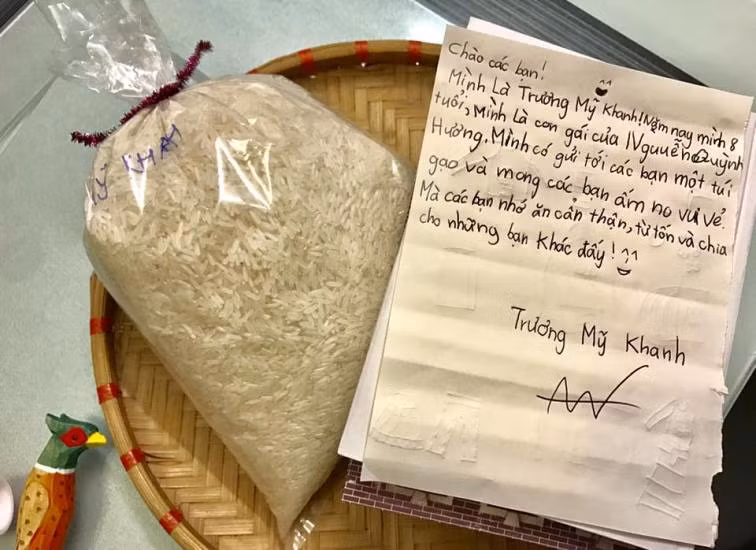 Ỹ KHAH
Chào các bạn!
Mình Là Trương Mỹ Khanh! Năm nay mình 8
tuổi, Mình Là con gái của Nguyễn Quỳnh
Hương. Mình có gửi tới các bạn một túi
gạo và mong các bạn ấm no vui vẻ.
Mà các bạn nhớ ăn cẩn thận, từ tốn và chia
cho những bạn Khác đấy!
Trương Mỹ Khanh